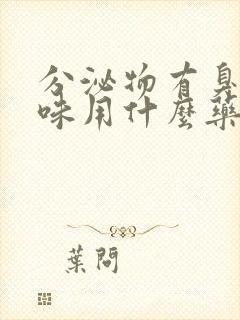 分泌物有臭
味用什麼藥
葉問